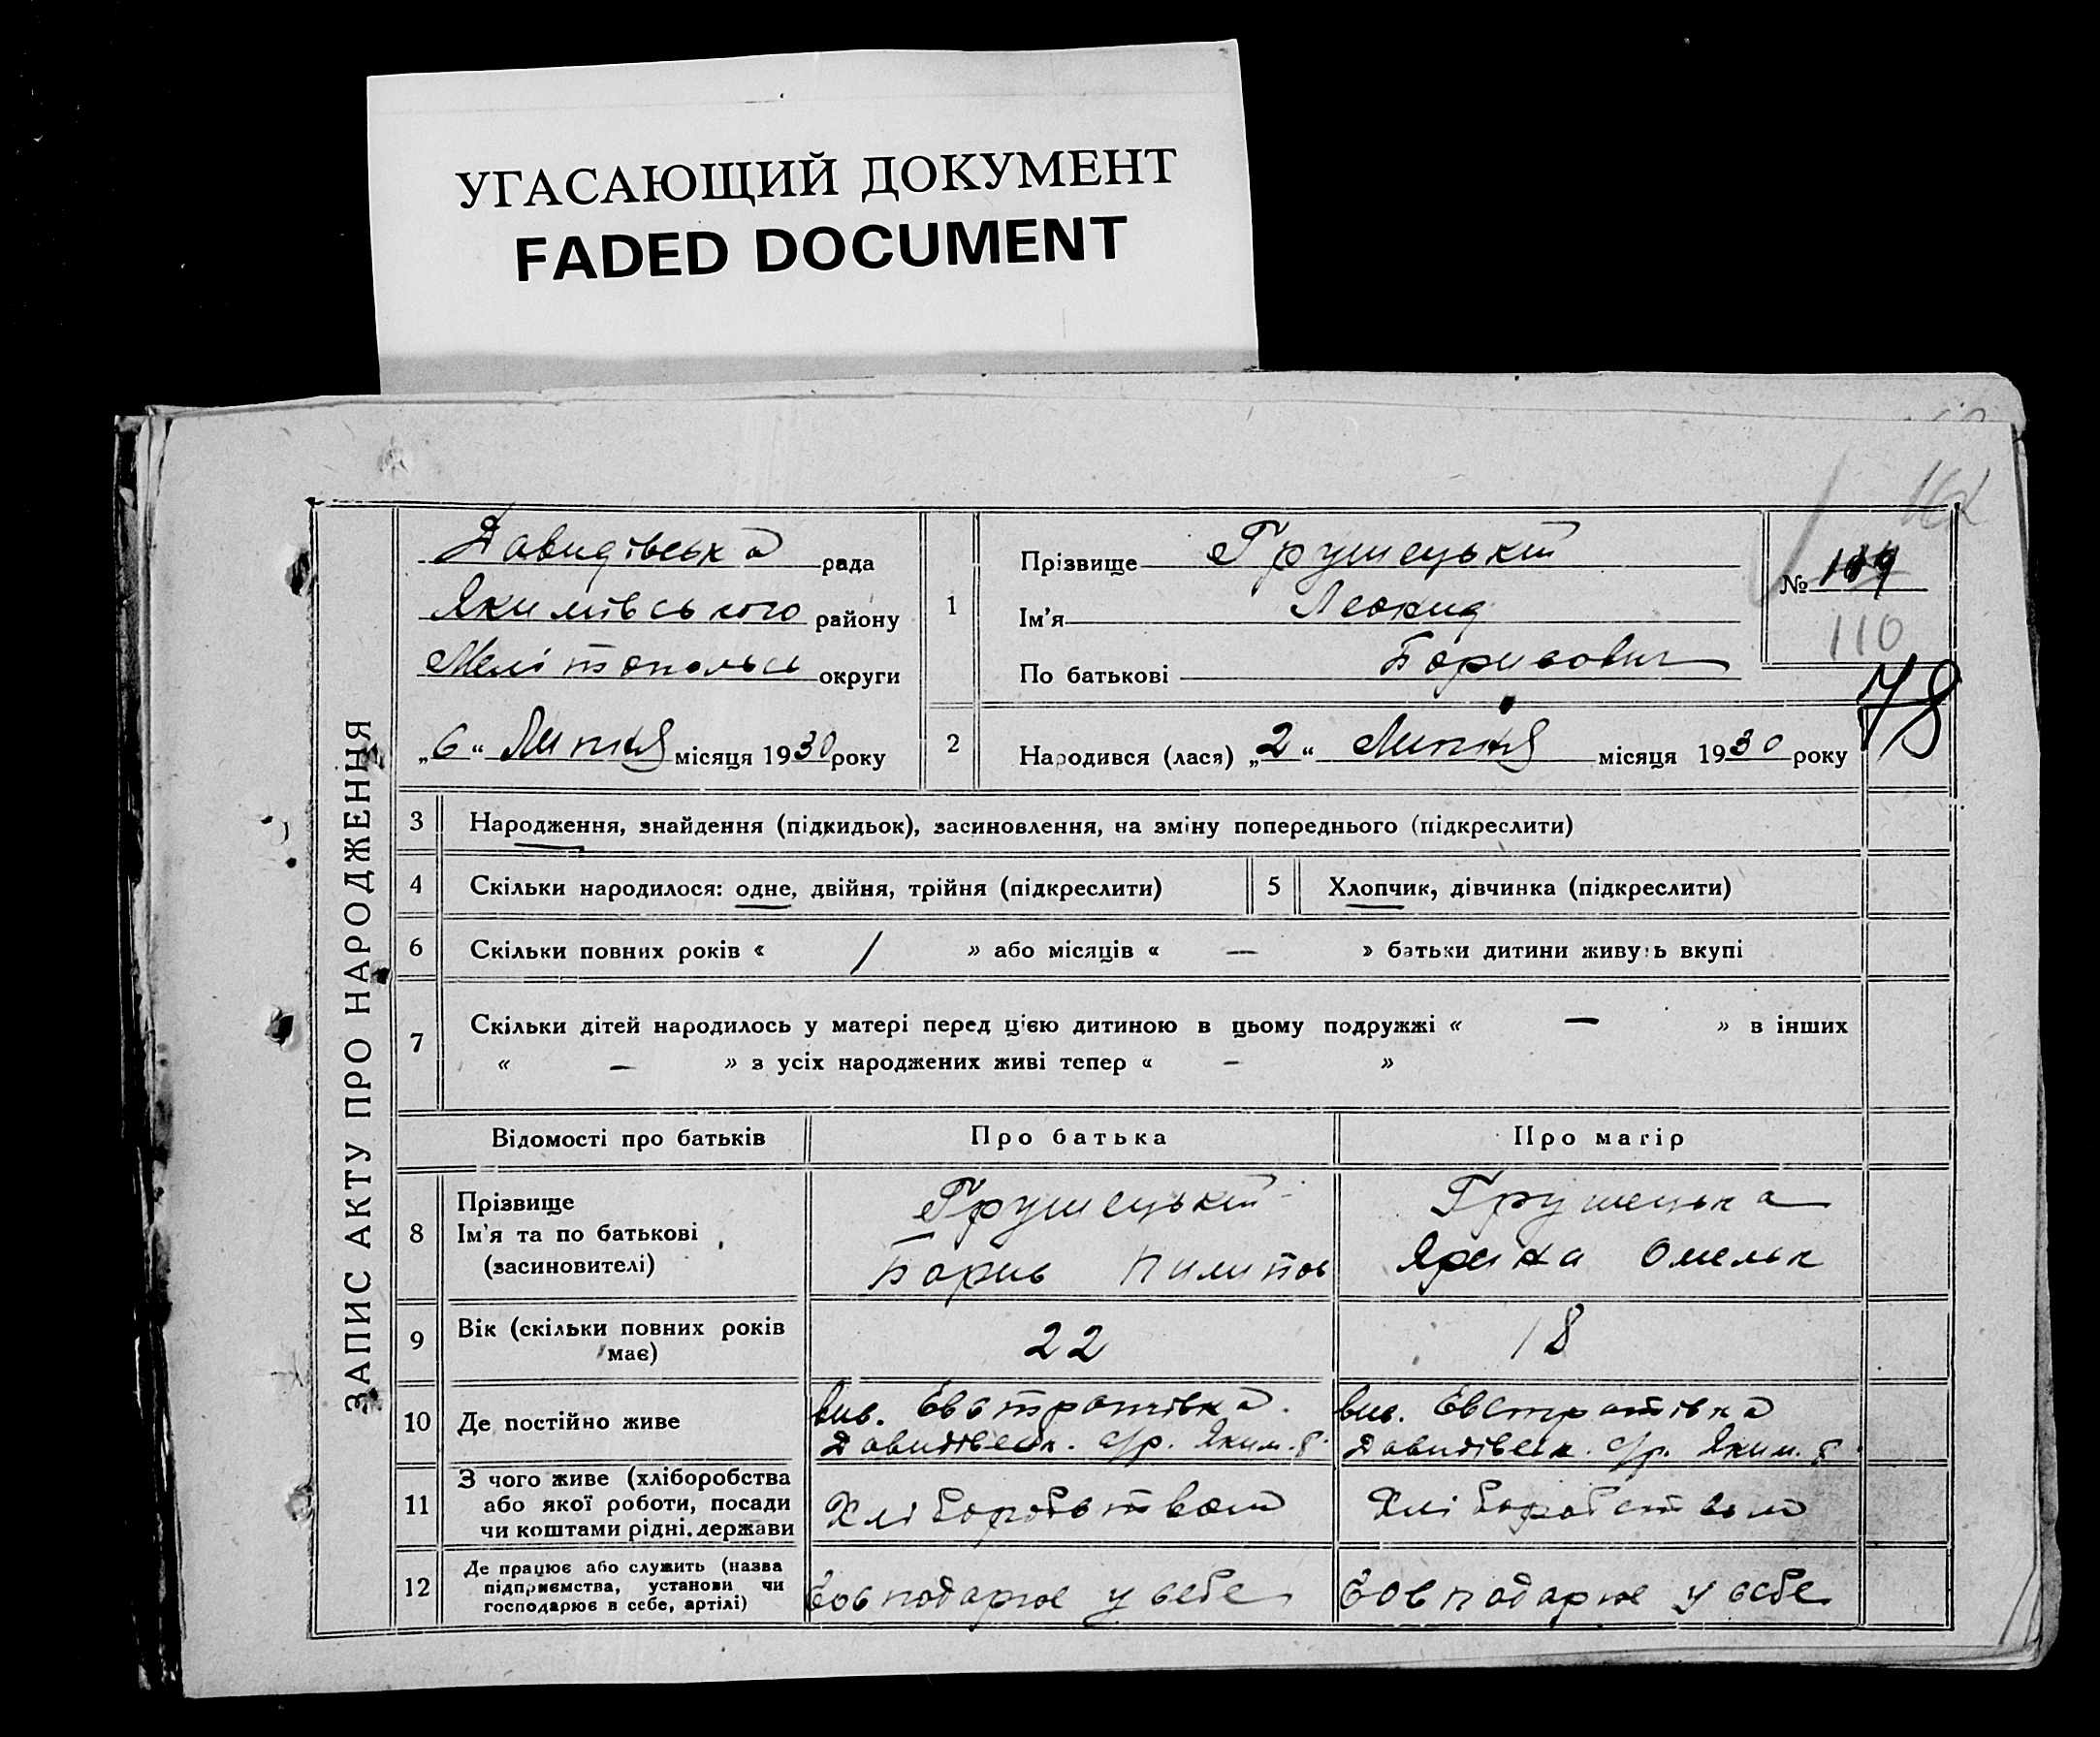 УГАСАЮЩИЙ ДОКУМЕНТ
FADED DOCUMENT
ЗАПИС АКТУ ПРО НАРОДЖЕННЯ
Давидівська рада
Якимівського району
Мелітопольсь округи
„6“ Липня місяця 1930 року
1
Прізвище Грушецький
Ім'я Леонид
По батькові Борисович
№ 109
110
78
2
Народився (лася) „2“ Липня місяця 1930 року
3 Народження, знайдення (підкидьок), засиновлення, на зміну попереднього (підкреслити)
4 Скільки народилося: одне, двійня, трійня (підкреслити)
5 Хлопчик, дівчинка (підкреслити)
6 Скільки повних років « / » або місяців « — » батьки дитини живуть вкупі
7 Скільки дітей народилось у матері перед цією дитиною в цьому подружжі « — » в інших
« — » з усіх народжених живі тепер « — »
Відомості про батьків Про батька Про матір
8 Прізвище
Ім'я та по батькові
(засиновителі)
Грушецький
Борис Пилипов
Грушецька
Ярина Омельк
9 Вік (скільки повних років
має)
22
18
10 Де постійно живе
вис. Евстратівка.
Давидівськ. с/р. Яким. р.
вис. Евстратівка
Давидівськ. с/р. Яким. р.
11 З чого живе (хліборобства
або якої роботи, посади
чи коштами рідні, держави
Хліборобством
Хліборобством
12 Де працює або служить (назва
підприємства, установи чи
господарює в себе, артілі)
Господарює у себе
Господарює у себе